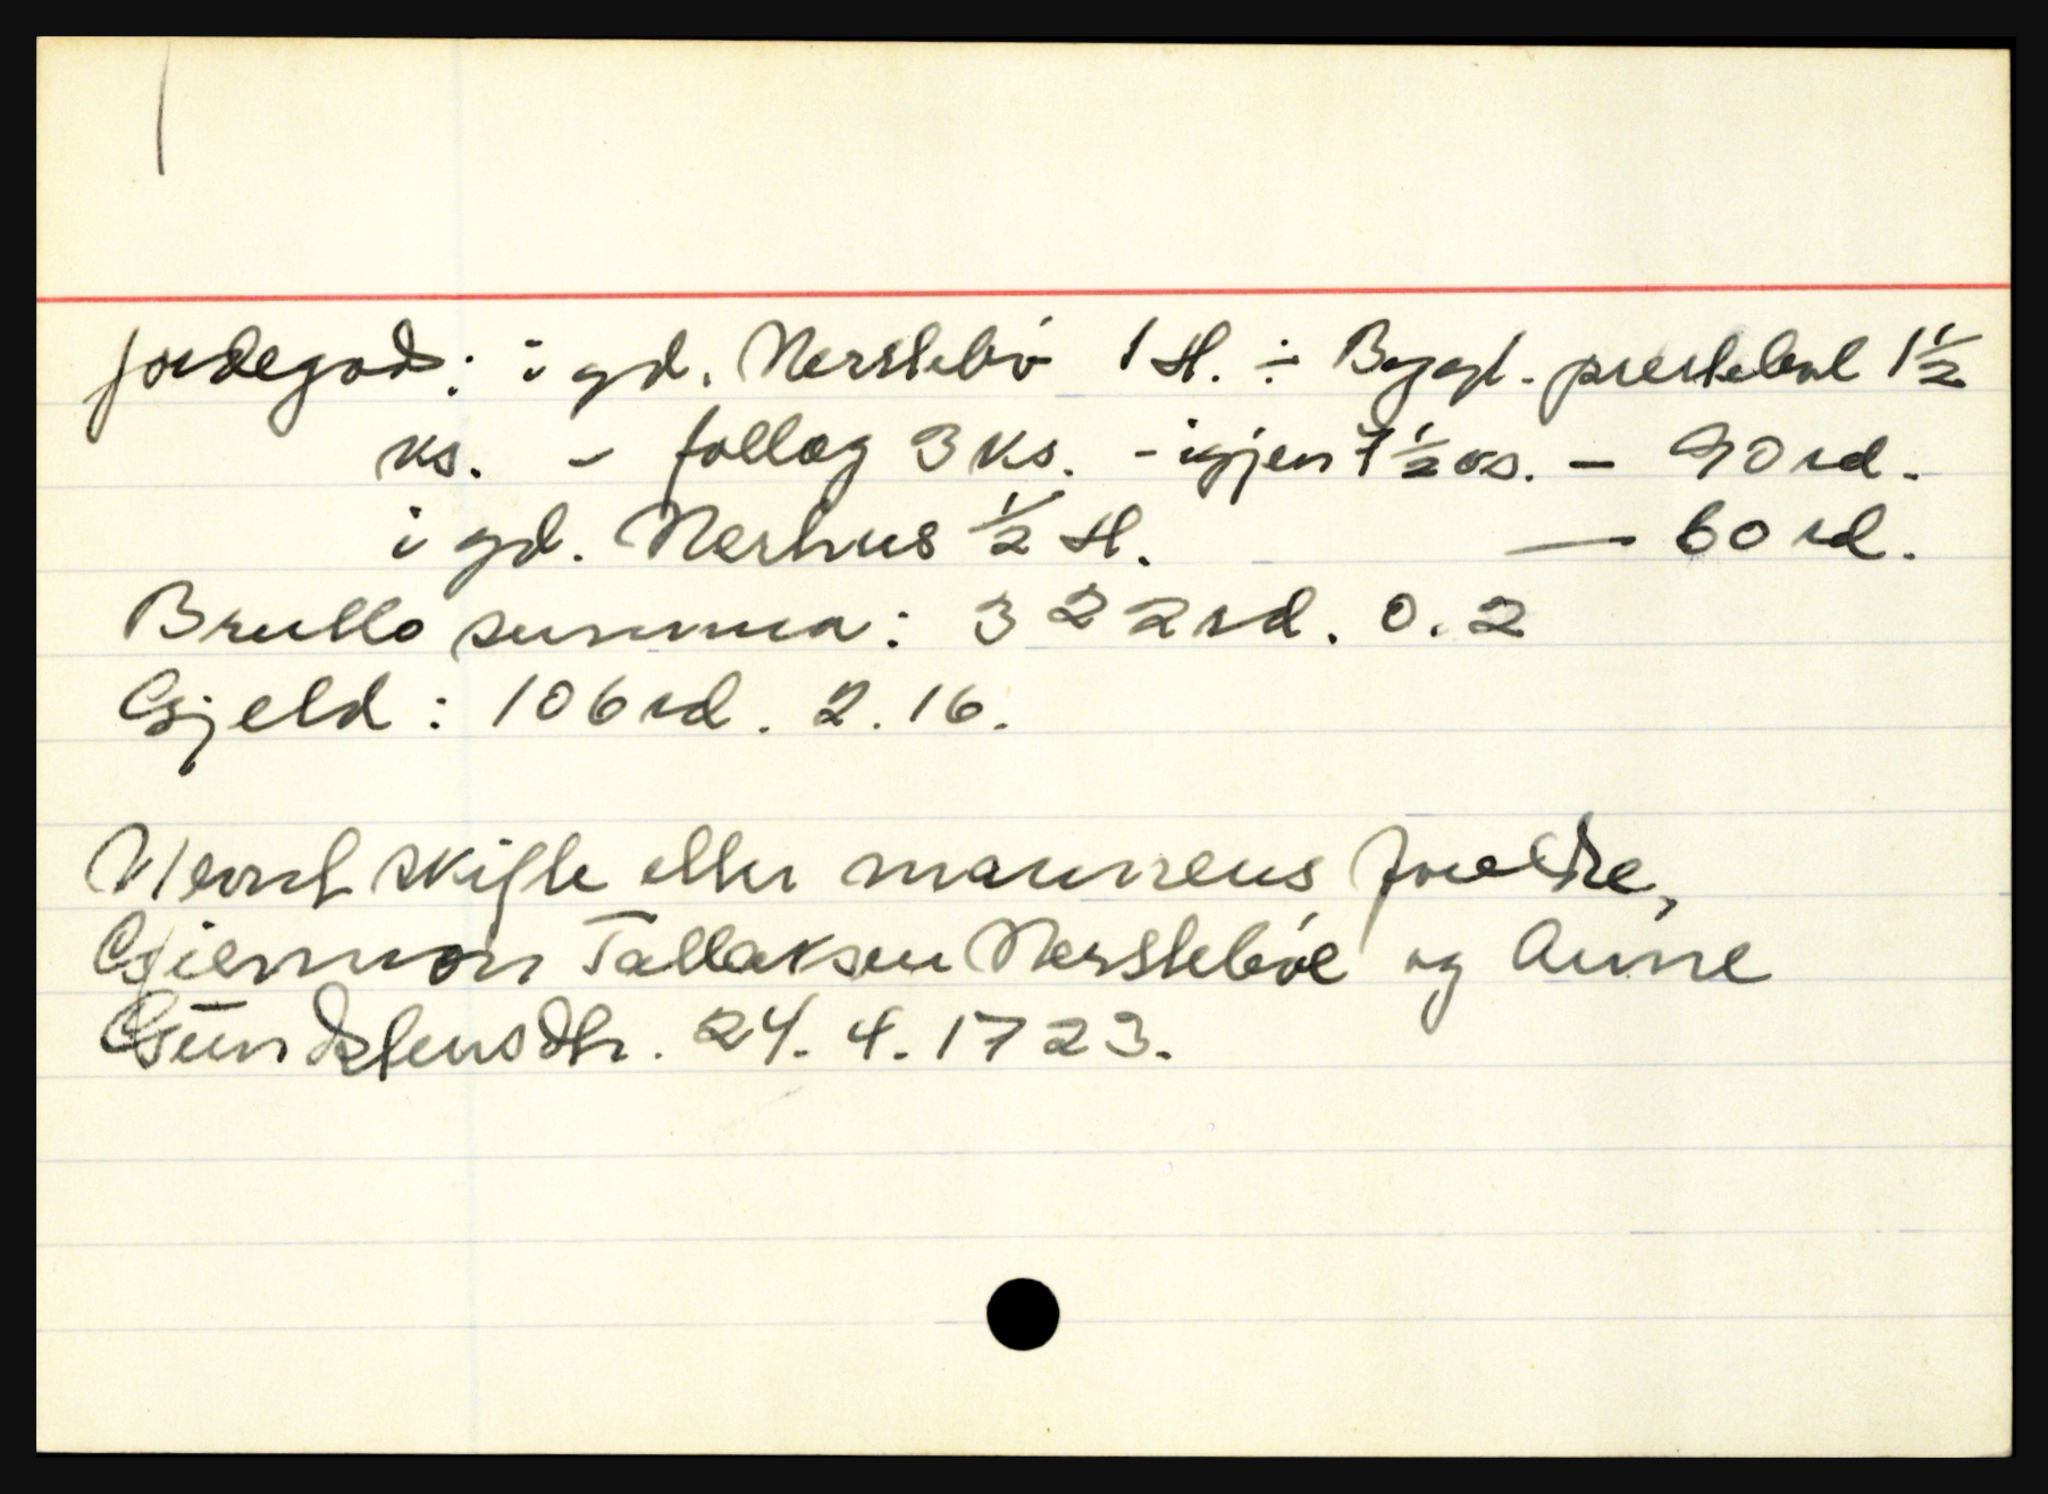 jordegods: i gd. Nerstebö 1 H. ÷ Bygl. prestebol 1½
ks. - follog 3 ks. - igjen 7½ ks. - 90 rd.
i gd. Nerhus ½ H. — 60 rd.
Brutto summa: 322 rd. 0. 2
Gjeld: 106 rd. 2. 16.
Nevnt skifte etter mannens foreldre,
Gjermon Tallaksen Nersteböe og Anne
Gundstensdtr. 24. 4. 1723.